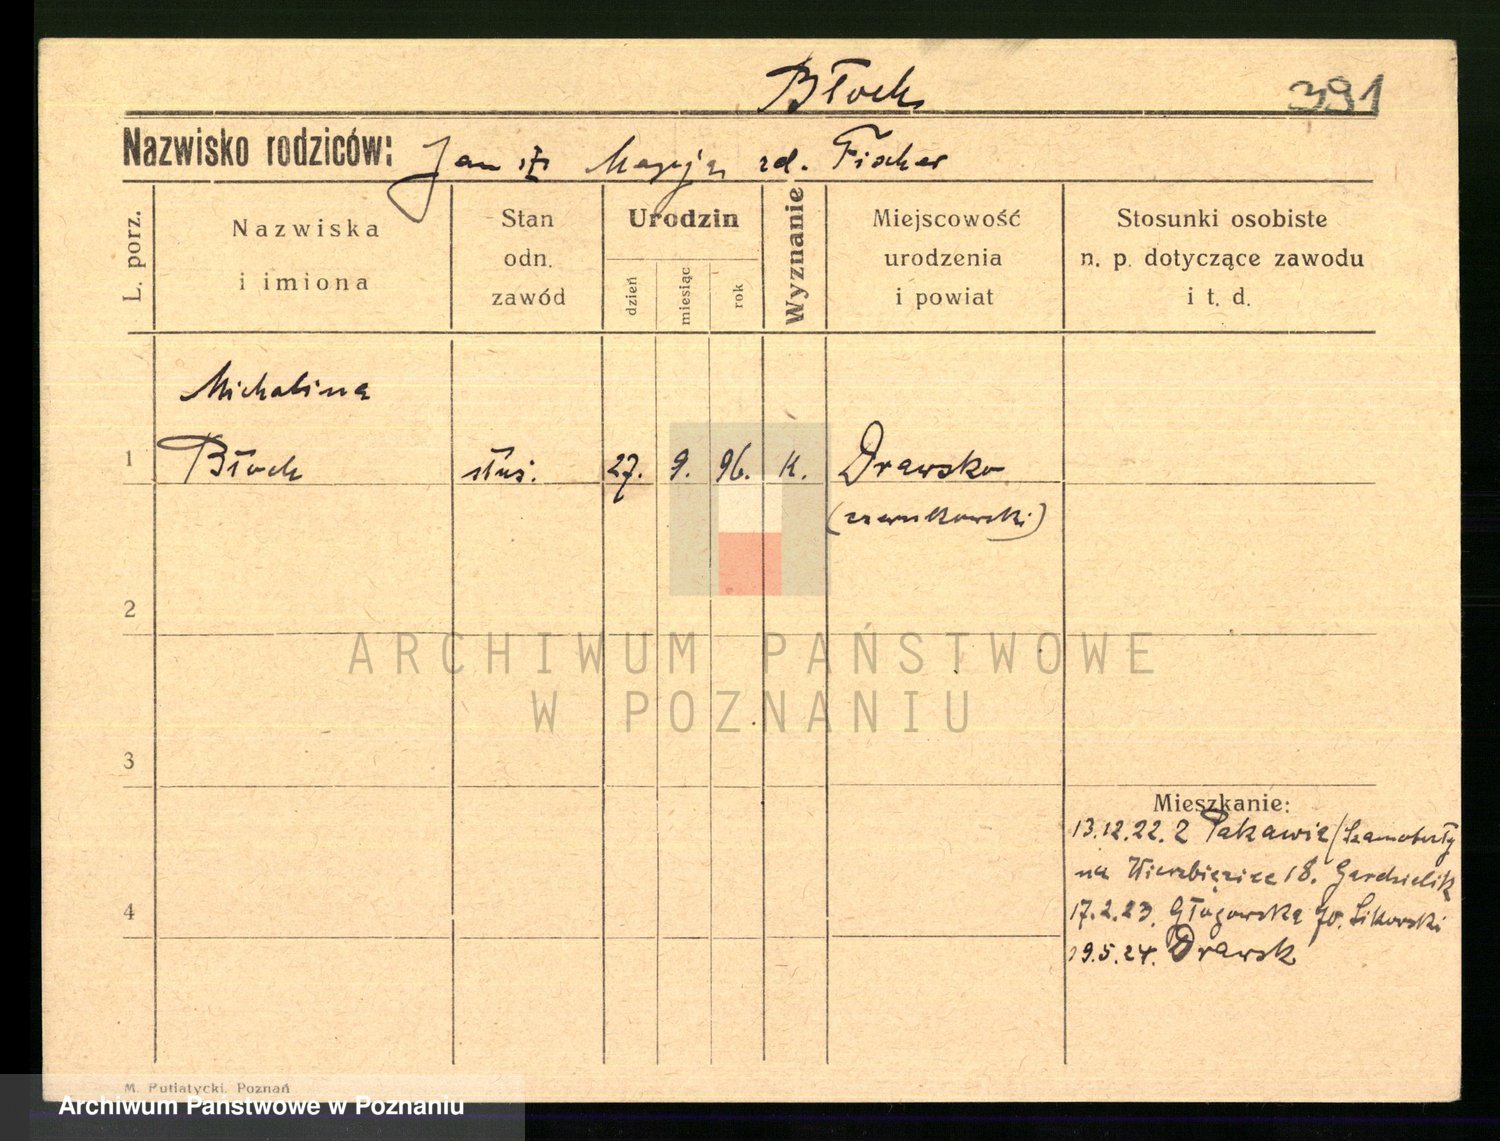 Błoch
391
Nazwisko rodziców: Jan i Maryja zd. Fischer
L. porz.
Nazwiska
i imiona
Stan
odn.
zawód
Urodzin
dzień
miesiąc
rok
Wyznanie
Miejscowość
urodzenia
i powiat
Stosunki osobiste
n. p. dotyczące zawodu
i t. d.
Michalina
1 Błoch służ. 27. 9. 96. k. Drawsko
(czarnkowski)
2
ARCHIWUM PAŃSTWOWE
W POZNANIU
3
Mieszkanie:
13.12.22. z Pakawie (Szamotuły
na Wierzbięcice 18. Gardzielik
4
17.2.23. Głogowska 70. Sikorski
19.5.24. Drawsk
M. Putiatycki, Poznań
Archiwum Państwowe w Poznaniu